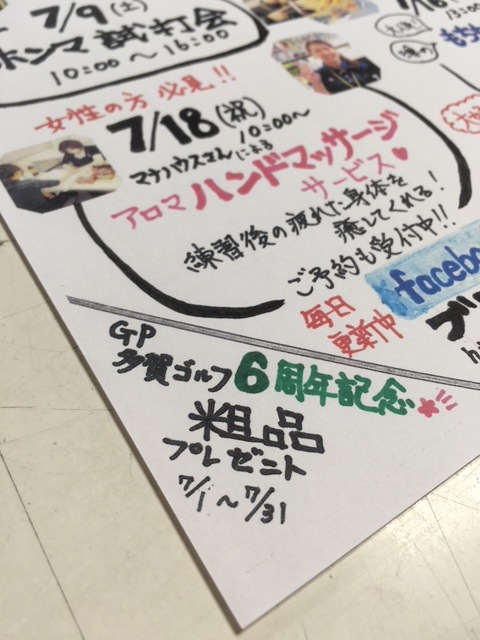 7/9(土)
ホンマ 試打会
10:00〜16:00
女性の方 必見!!
7/18(祝)
10:00〜
マナハウスさんによる
アロマ ハンドマッサージ
サービス♥
練習後の疲れた身体を
癒してくれる!
ご予約も受付中!!
毎日
更新中
GP
多賀ゴルフ 6周年記念
粗品
プレゼント
7/1〜7/31